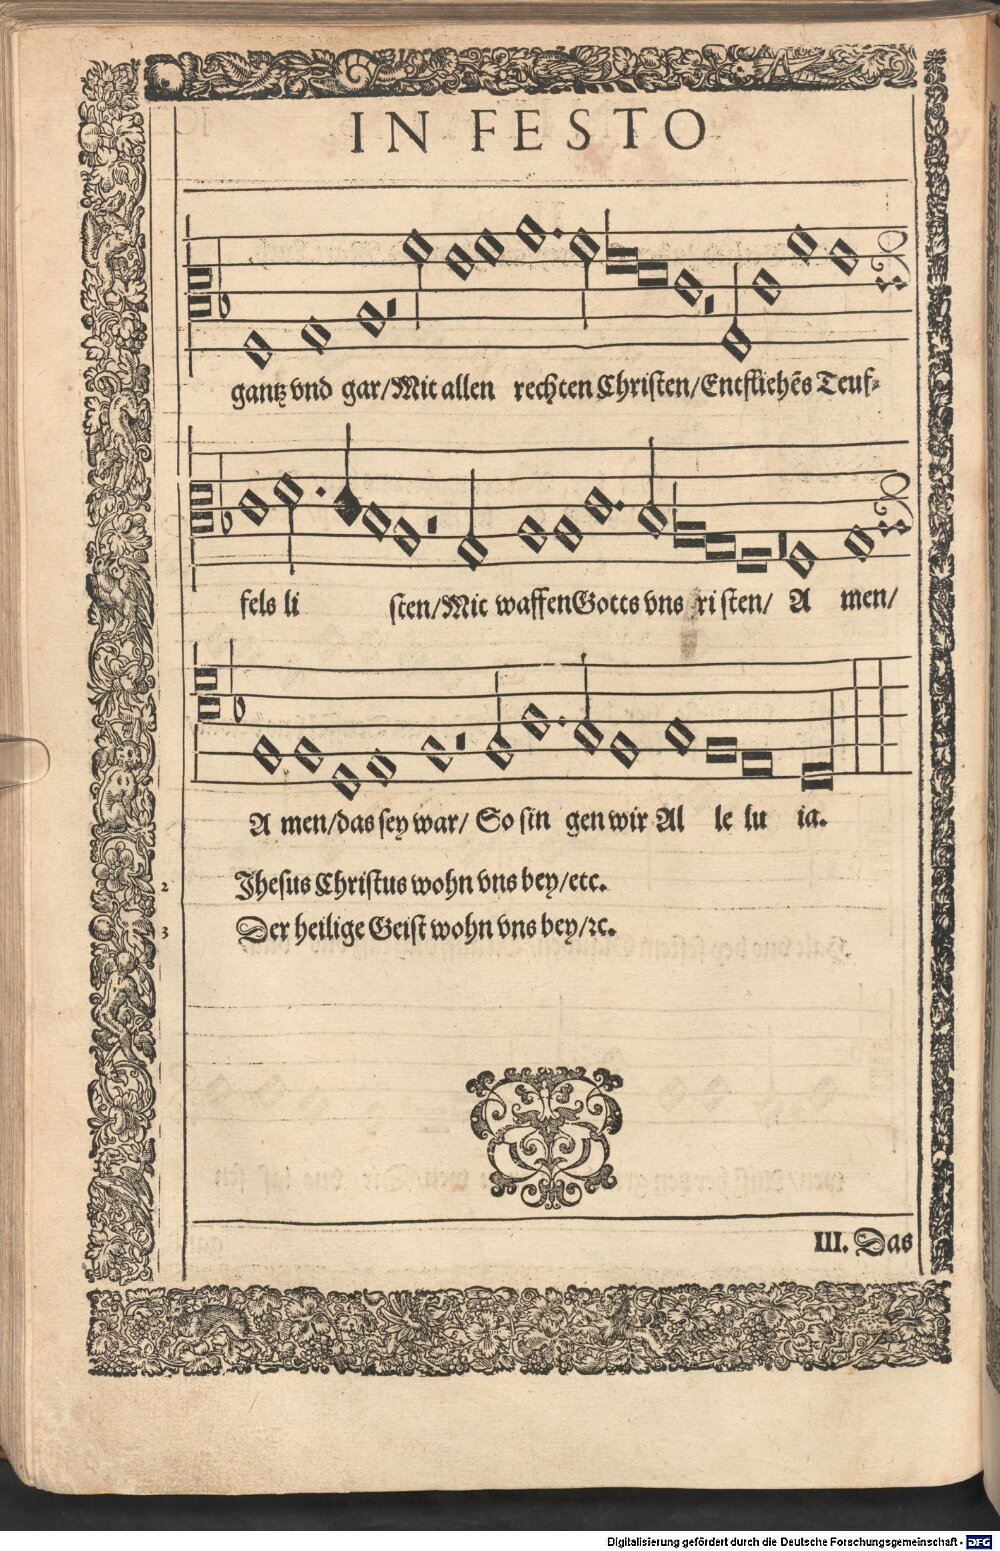 IN FESTO
gantz vnd gar/Mit allen rechten Christen/Entfliehẽs Teuf⸗
fels li sten/Mit waffenGotts vns risten/ A men/
A men/das sey war/ So sin gen wir Al le lu ia.
2 Jhesus Christus wohn vns bey/etc.
3 Der heilige Geist wohn vns bey/ꝛc.
III. Das
Digitalisierung gefördert durch die Deutsche Forschungsgemeinschaft - DFG